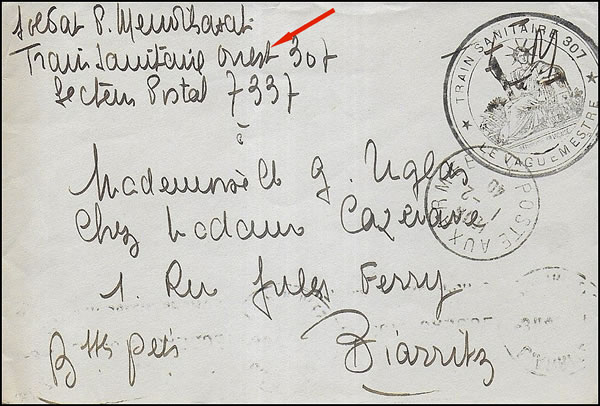 Soldat P. Mendiharat
Train Sanitaire Ouest 307
Secteur Postal 7337
à
Mademoiselle G. Uglas
Chez Madame Cazenave
1. Rue Jules Ferry
Biarritz
Bses Pés
TRAIN SANITAIRE 307
LE VAGUEMESTRE
F M
POSTE AUX ARMEES
-2
40